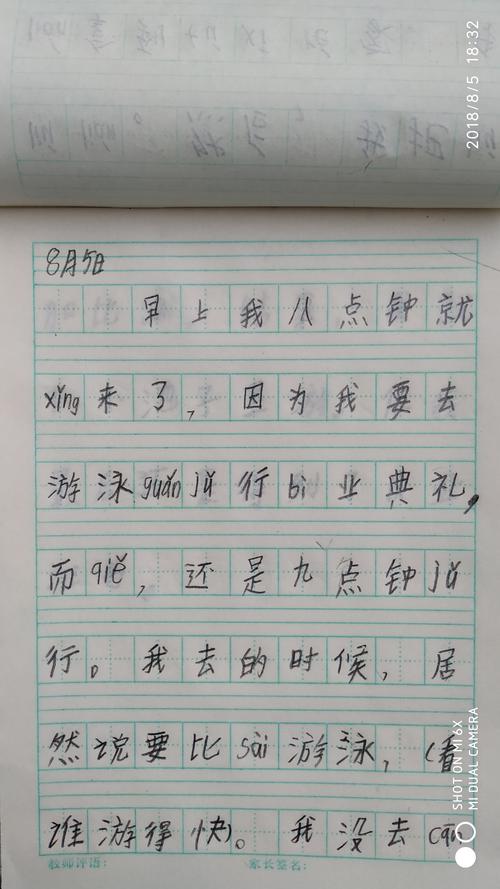 2018/8/5 18:32
8月5日
早上我八点钟就
xǐng来了，因为我要去
游泳guǎn jǔ行bì业典礼，
而qiě，还是九点钟jǔ
行。我去的时候，居
然说要比sài游泳，（看
谁游得快）。我没去cān
教师评语： 家长签名：
SHOT ON MI 6X
MI DUAL CAMERA